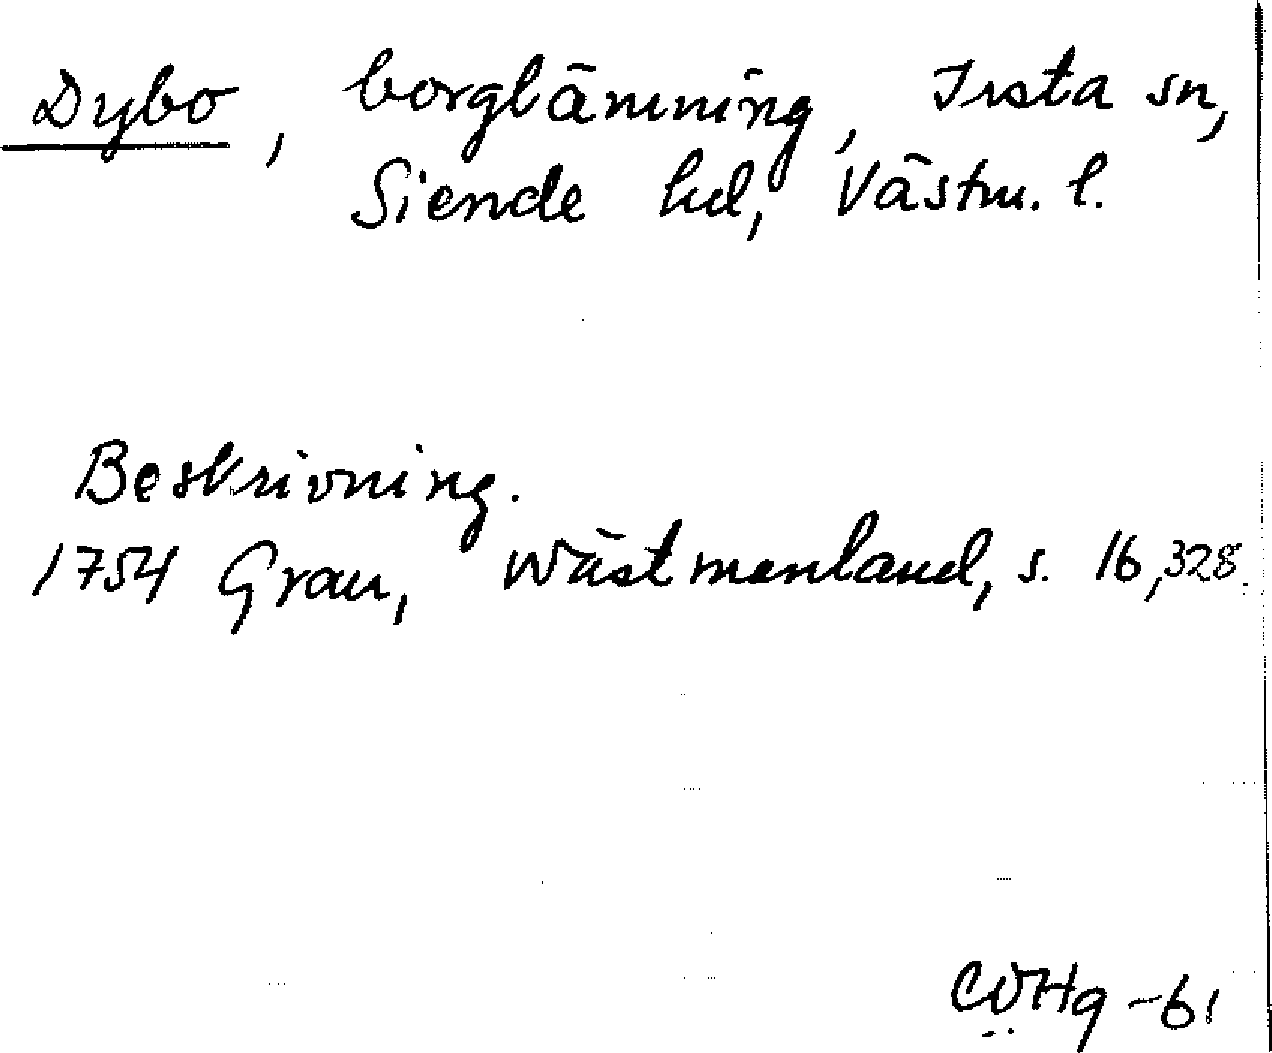 Dybo, borglämning, Irsta sn,
Siende hd, Västm. l.
Beskrivning.
1754 Grau, Wästmanland, s. 16,328.
-61